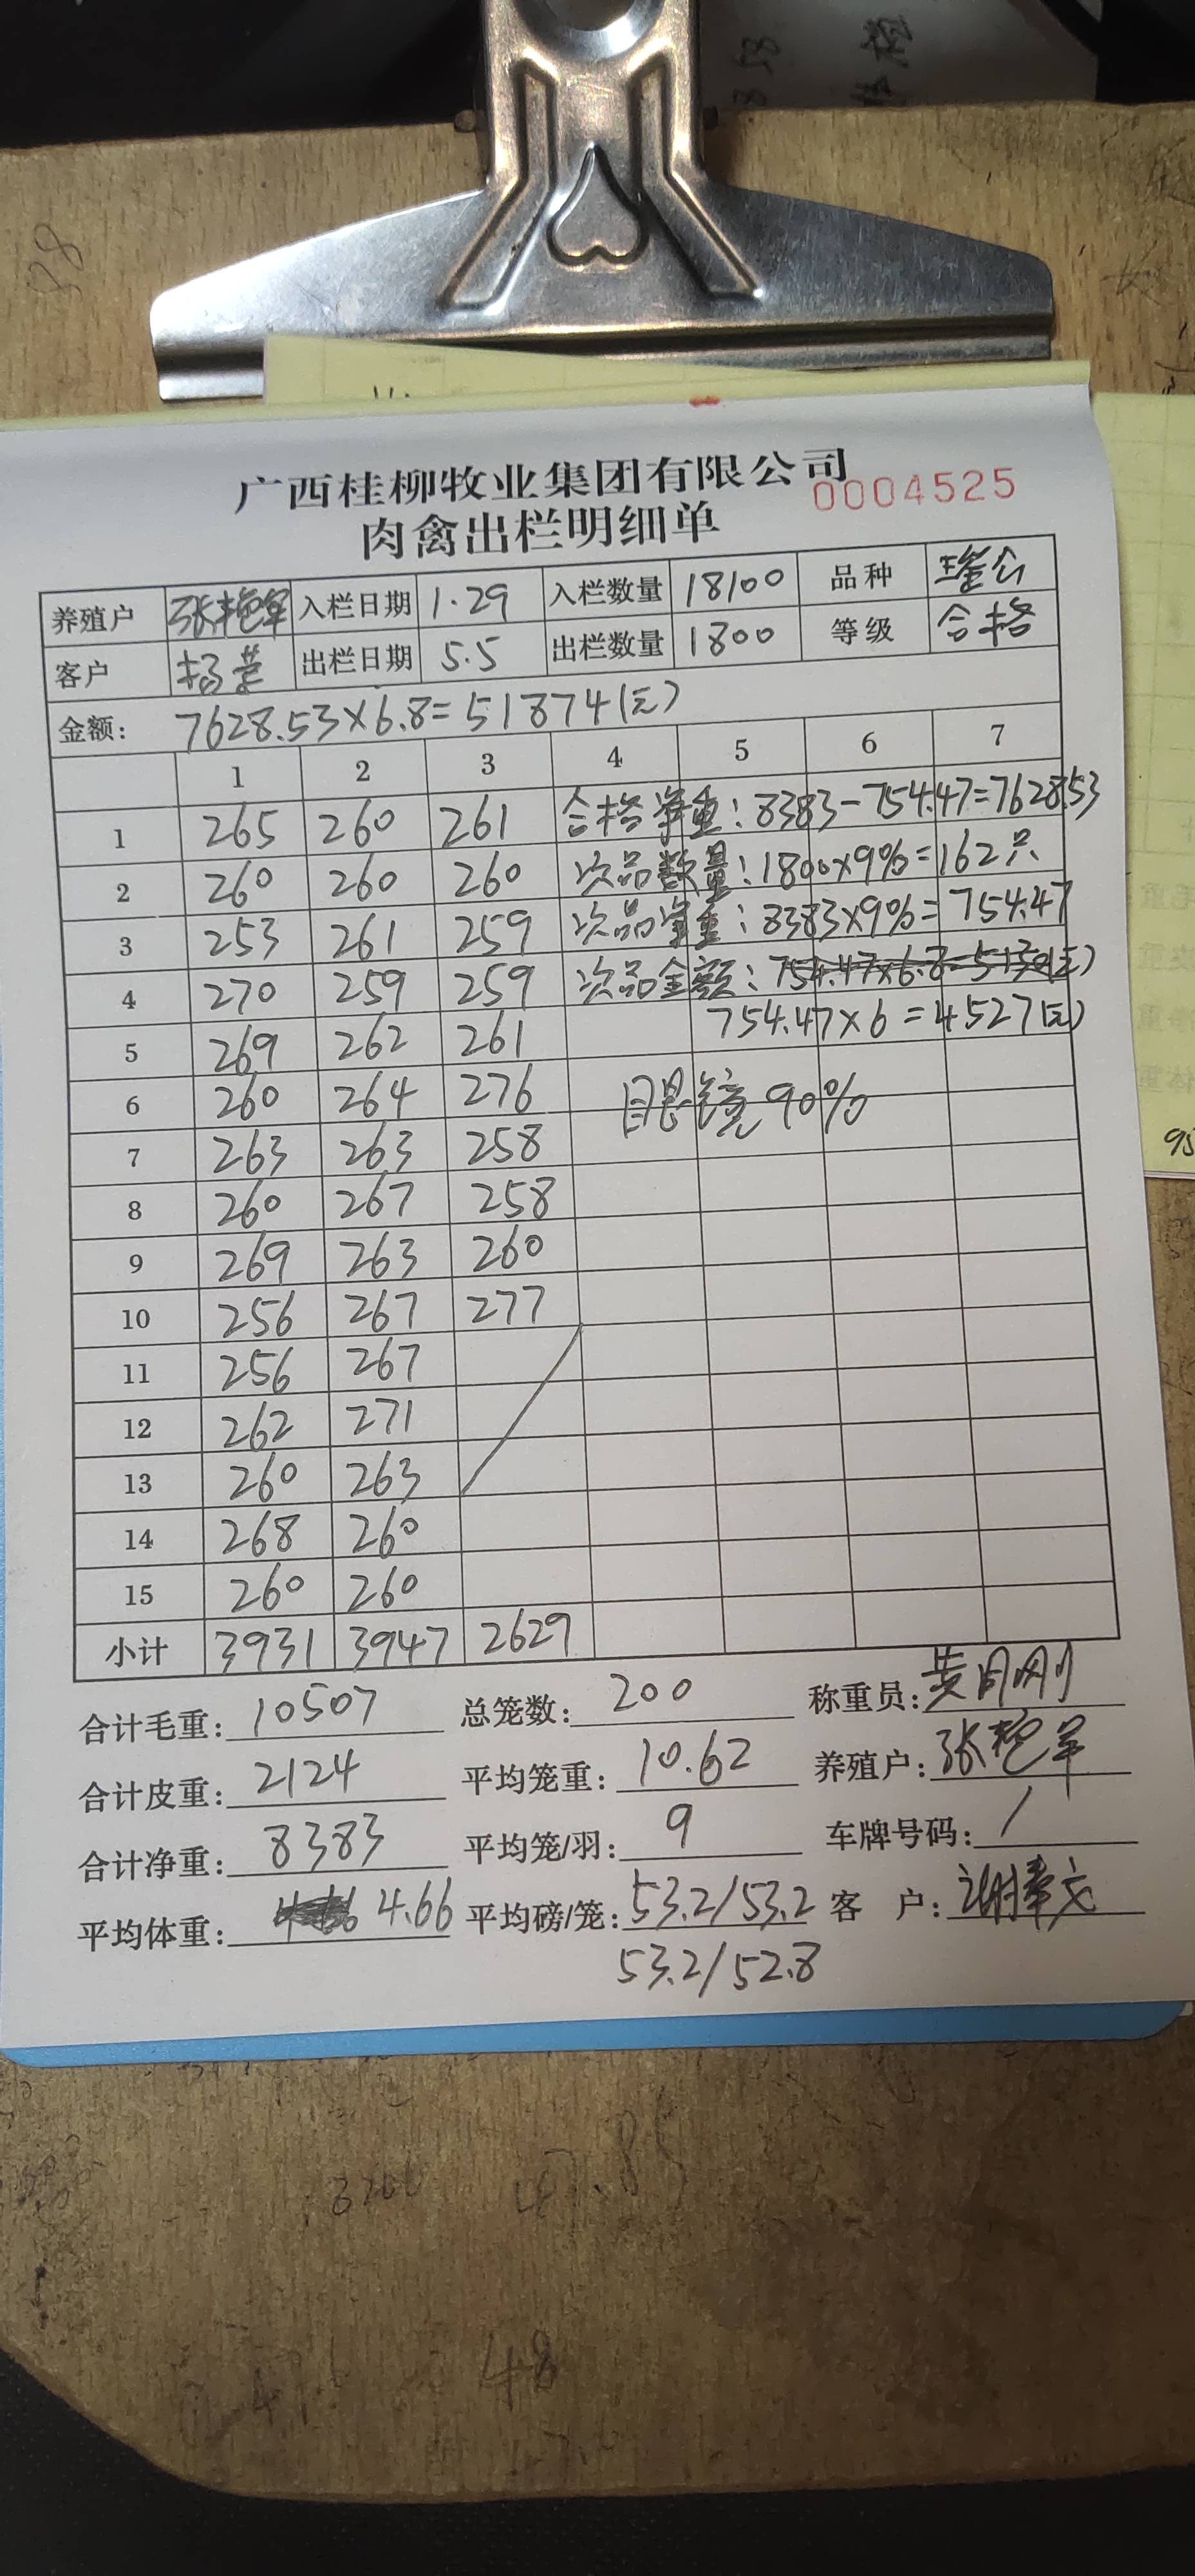 广西桂柳牧业集团有限公司
0004525
肉禽出栏明细单
养殖户 张艳军 入栏日期 1.29 入栏数量 18100 品种
客户 杨 出栏日期 5.5 出栏数量 1800 等级 合格
金额: 7628.53×6.8=51874(元)
1 2 3 4 5 6 7
1 265 260 261 合格净重:8383-754.47=7628.53
2 260 260 260 次品数量:1800×9%=162只
3 253 261 259 次品净重:8383×9%=754.47
4 270 259 259 次品金额:754.47×6.8=5130(元)
5 269 262 261 754.47×6=4527(元)
6 260 264 276 眼镜90%
7 263 263 258
8 260 267 258
9 269 263 260
10 256 267 277
11 256 267
12 262 271
13 260 263
14 268 260
15 260 260
小计 3931 3947 2629
合计毛重: 10507 总笼数: 200 称重员: 黄刚
合计皮重: 2124 平均笼重: 10.62 养殖户: 张艳军
合计净重: 8383 平均笼/羽: 9 车牌号码: /
平均体重: 4.66 平均磅/笼: 53.2/53.2 客 户: 谢
53.2/52.8
48